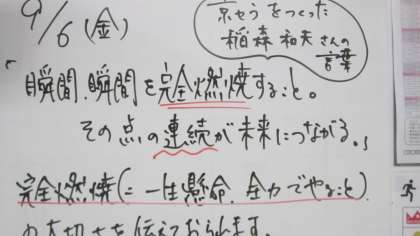 9/6(金)
京セラをつくった
稲森和夫さんの
言葉
「瞬間、瞬間を完全燃焼すること。
その点の連続が未来につながる。」
完全燃焼(=一生懸命、全力でやること)
の大切さを伝えておられます。